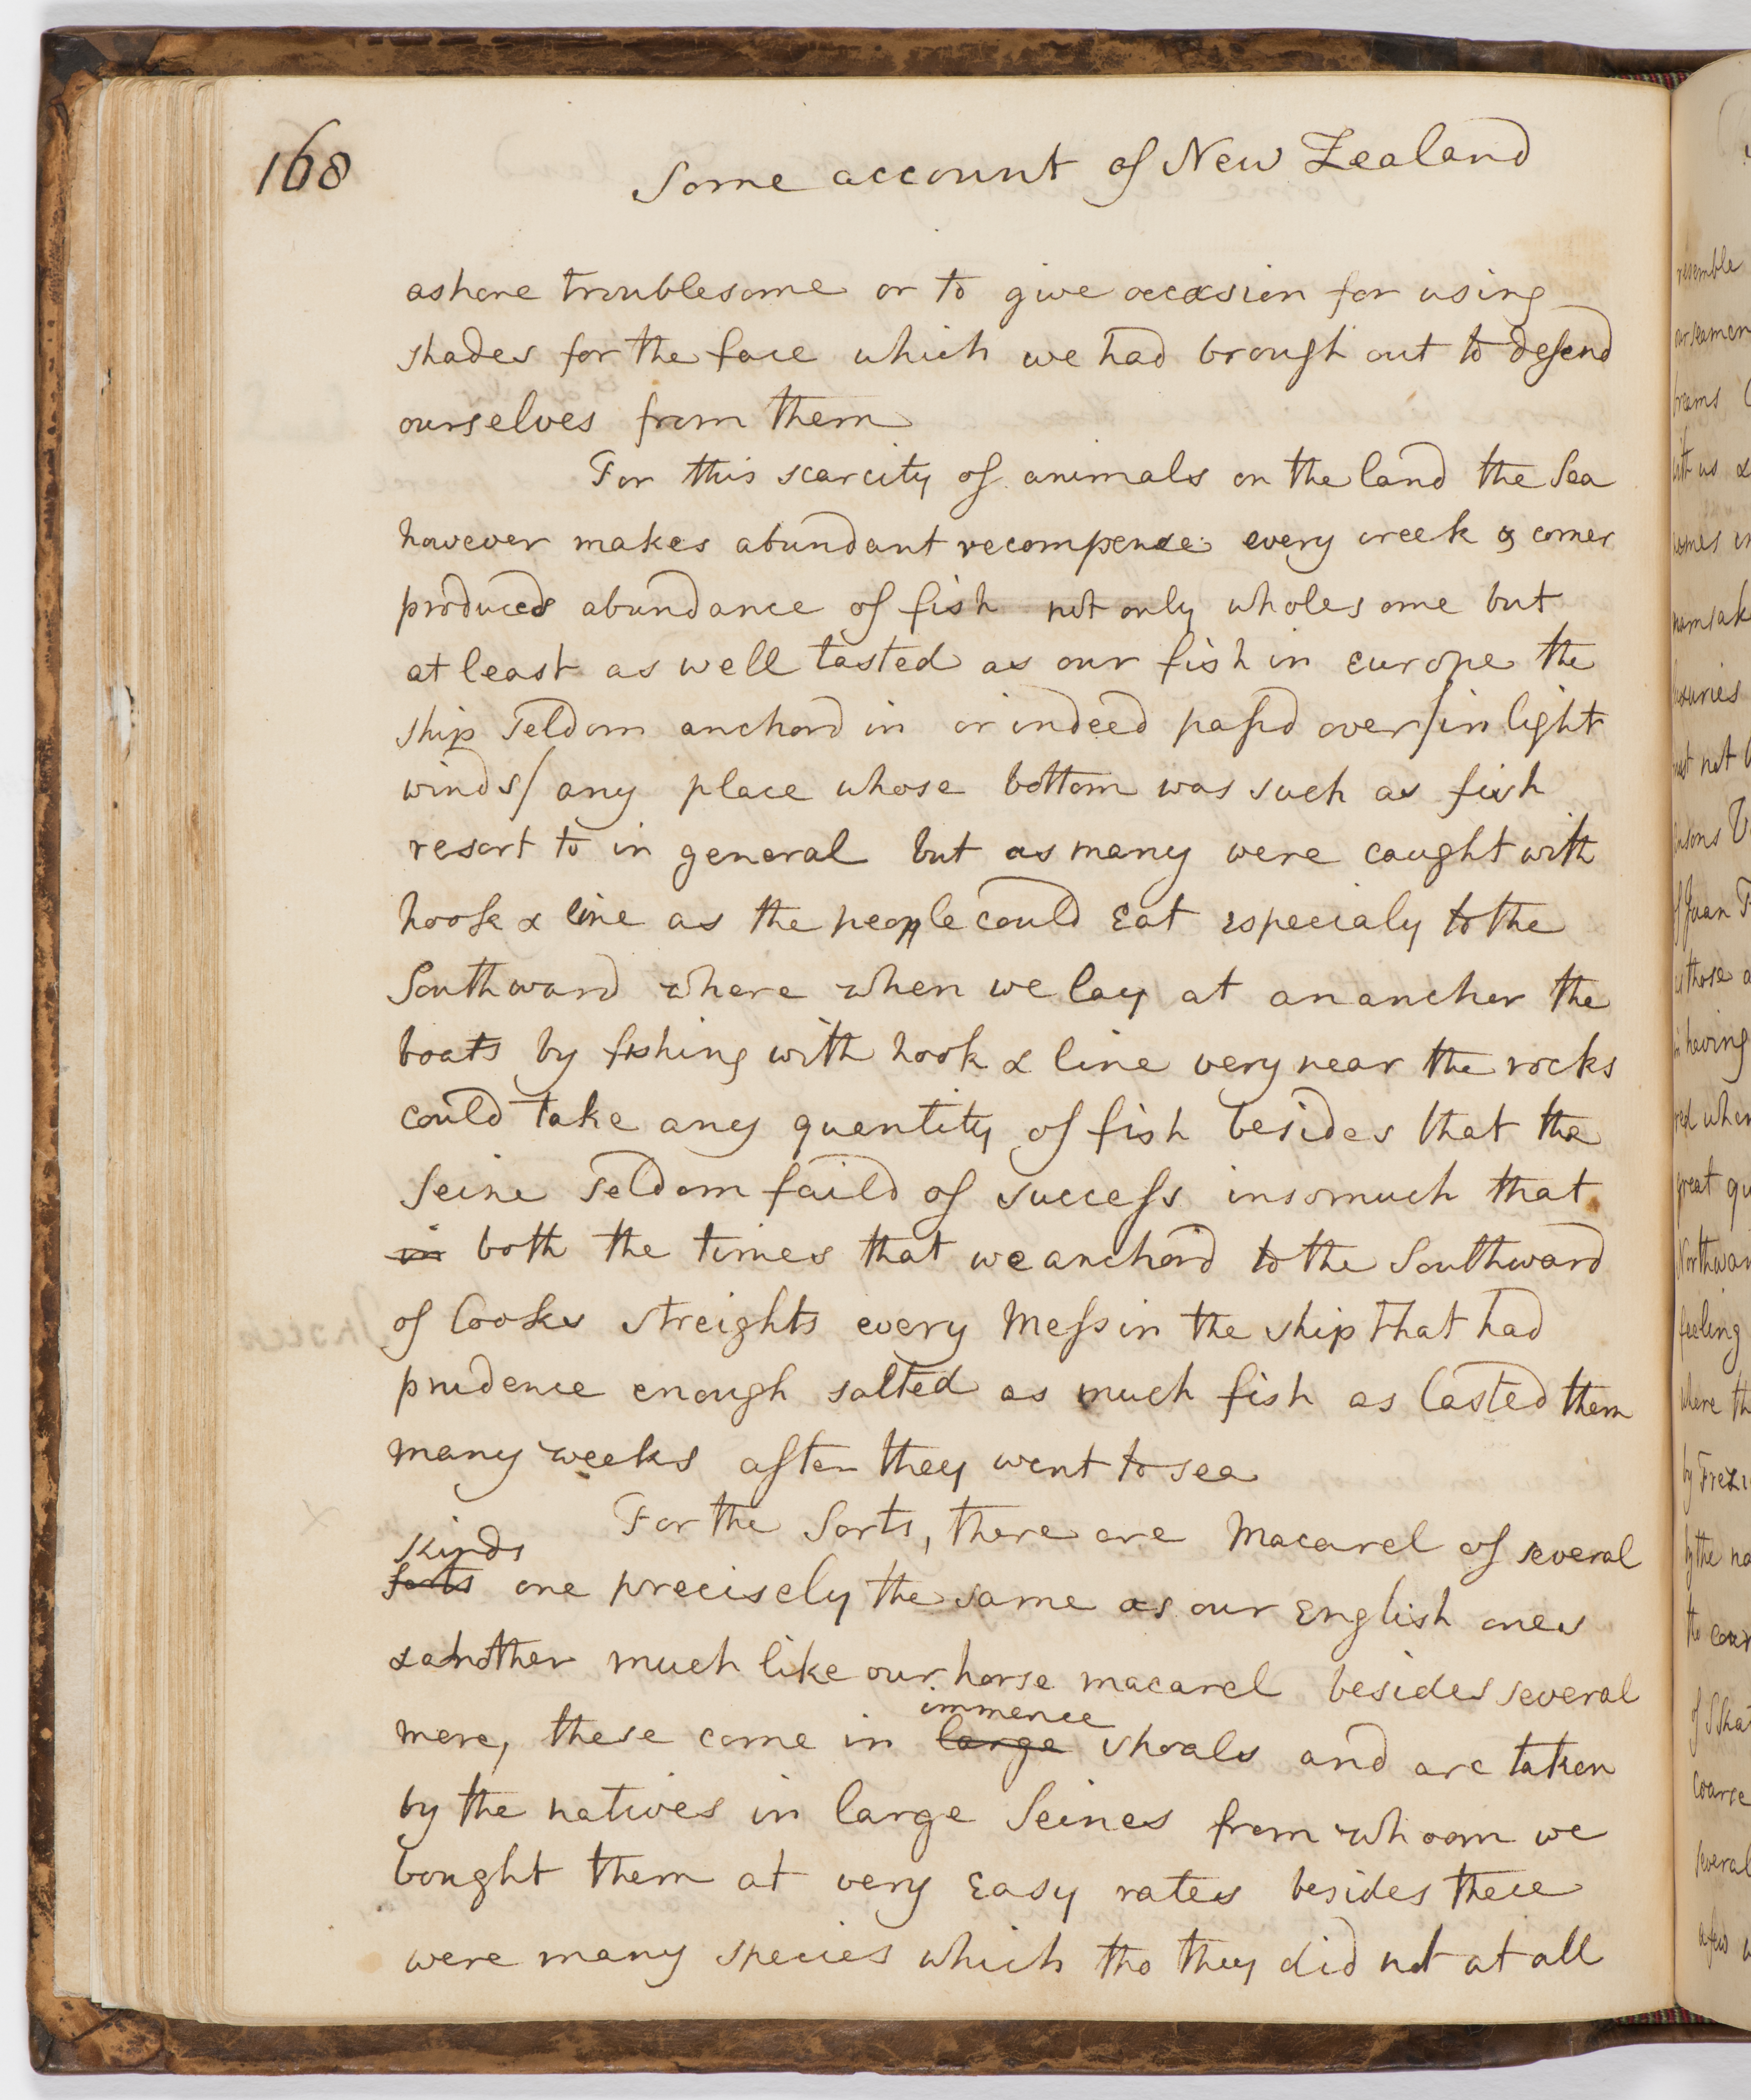 168
Some account of New Zealand
ashore troublesome or to give occasion for using
shades for the face which we had brough out to defend
ourselves from them
For this scarcity of animals on the land the Sea
however makes abundant recompense every creek & corner
produces abundance of fish not only wholesome but
at least as well tasted as our fish in europe the
ship seldom anchord in or indeed passd over/in light
winds/ any place whose bottom was such as fish
resort to in general but as many were caught with
hook & line as the people could Eat especialy to the
Southward where when we lay at an ancher the
boats by fishing with hook & line very near the rocks
could take any quantity of fish besides that the
Seine seldom faild of success insomuch that
in both the times that we anchord to the Southward
of Cooks streights every Mess in the ship that had
prudence enough salted as much fish as lasted them
many weeks after they went to sea
For the Sorts, there are Macarel of several
kinds
sorts one precisely the same as our English ones
& another much like our horse macarel besides several
more, these come in
immence
large shoals and are taken
by the natives in large Seines from whoom we
bought them at very Easy rates besides these
were many species which tho they did not at all
resemble
our seamen
breams
with us &
names
namsak
luxuries
but not
of Juan F
those
having
red when
great qu
Northwar
feeling
where th
by Frezi
by the na
of Skat
coarse
several
a few